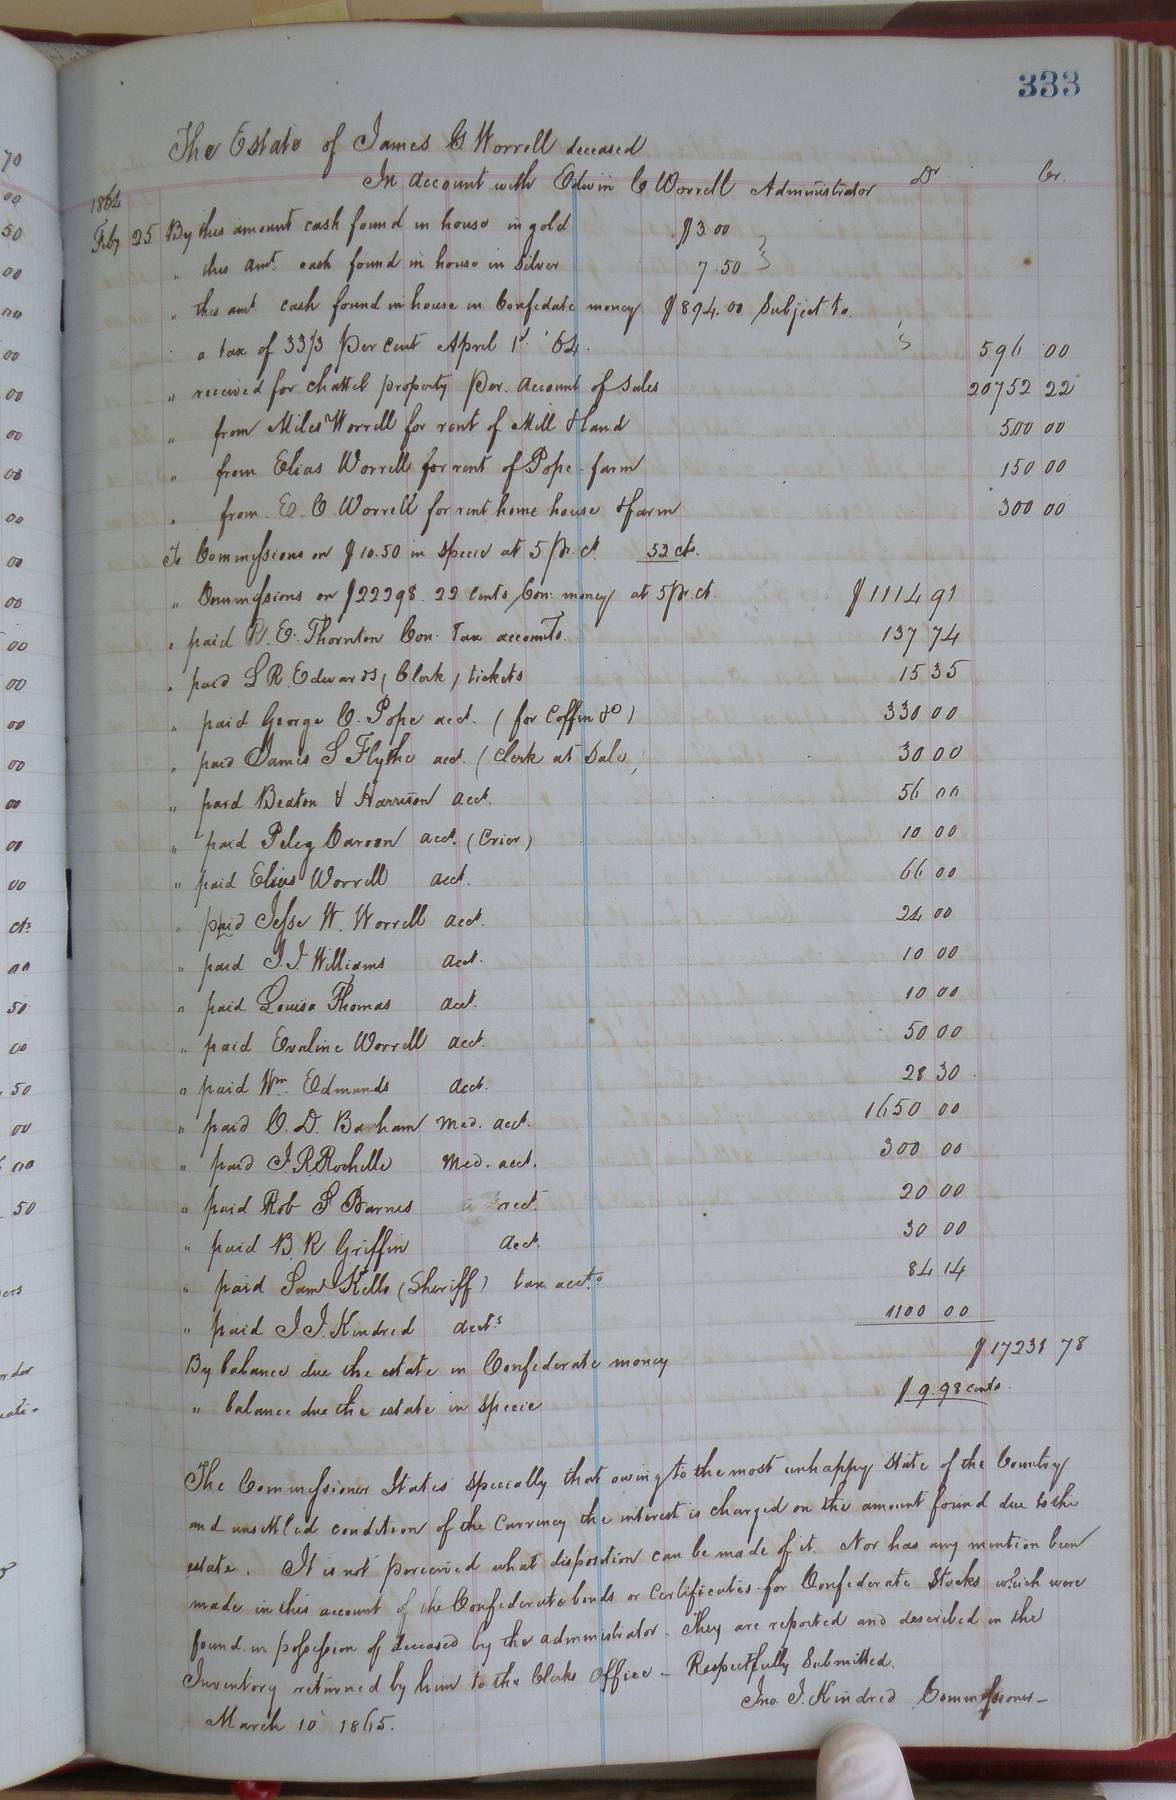 333
The Estate of James G Worrell deceased
In account with Edwin C Worrell Administrator Dr Cr.
1864
Feby 25 By this amount cash found in house in gold $3.00
" this amt. cash found in house in Silver 7.50
" this amt. cash found in house in Confedate money $894.00 Subject to
a tax of 33⅓ Per cent April 1st '64. 596 00
" received for chattel property Per. Account of Sales 20752 22
" from Miles Worrell for rent of Mill & land 500 00
" from Elias Worrell for rent of Pope farm 150 00
" from E. C. Worrell for rent home house & farm 300 00
To Commissions on $10.50 in specie at 5 Pr. ct. 52 cts.
" Commissions on $22298.22 cents Con. money at 5 Pr. ct. $1114 91
" paid R. E. Thornton Con. Tax accounts 137 74
" paid L R. Edwards (Clerk) tickets 15 35
" paid George C. Pope acct. (for Coffin &c) 330 00
" paid James S Flythe acct. (Clerk at Sale) 30 00
" paid Beaton & Harrison acct. 56 00
" paid Peleg acct. (Crier) 10 00
" paid Elias Worrell acct. 66 00
" paid Jesse W. Worrell acct. 24 00
" paid J. J. Williams acct. 10 00
" paid Louisa Thomas acct. 10 00
" paid Evaline Worrell acct. 50 00
" paid Wm. Edmunds acct. 28 30
" paid C. D. Barham Med. acct. 1650 00
" paid J. R. Rochelle Med. acct. 300 00
" paid Rob S Barnes acct. 20 00
" paid B. R Griffin acct. 30 00
" paid Saml Kello (Sheriff) tax accts 84 14
" paid J J. Kindred accts 1100 00
By balance due the estate in Confederate money $17231 78
" balance due the estate in specie $9.98 cents.
The Commissioner States specially that owing to the most unhappy state of the Country
and unsettled condition of the Currency the interest is charged on the amount found due to the
estate. It is not perceived what disposition can be made of it. Nor has any mention been
made in this account of the Confederate bonds or certificates for Confederate Stocks which were
found in possession of deceased by the administrator. They are reported and described in the
Inventory returned by him to the Clerks Office _ Respectfully Submitted.
Jno. J. Kindred Commissioner_
March 10 1865.